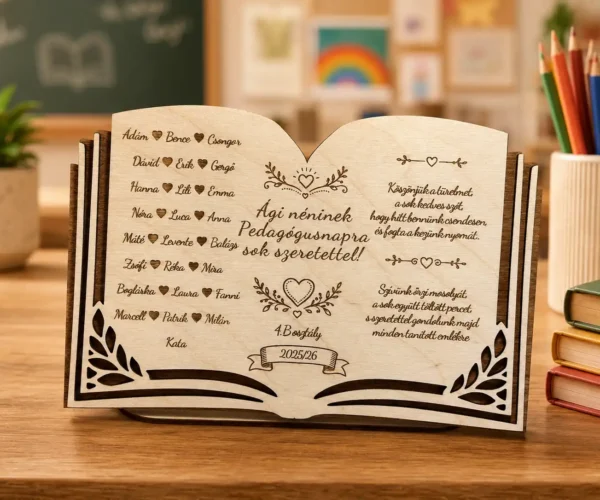 Ádám Bence Csongor
Dávid Erik Gergő
Hanna Lili Emma
Nóra Luca Anna
Máté Levente Balázs
Zsófi Réka Míra
Boglárka Laura Fanni
Marcell Patrik Milán
Kata
Ági néninek
Pedagógusnapra
sok szeretettel!
4.B osztály
2025/26
Köszönjük a türelmet,
a sok kedves szót,
hogy hitt bennünk csendesen,
és fogta a kezünk nyomát.
Szívünk őrzi mosolyát,
a sok együtt töltött percet,
s szeretettel gondolunk majd
minden tanított emlékre